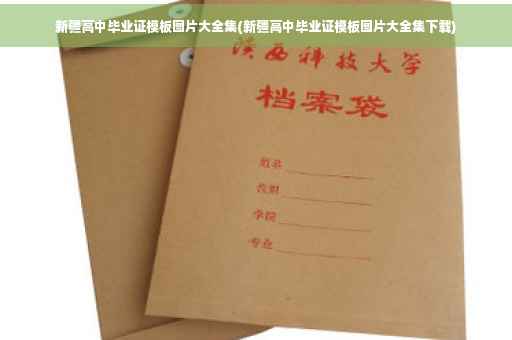 新疆高中毕业证模板图片大全集(新疆高中毕业证模板图片大全集下载)
陕西科技大学
档案袋
姓名
教职
学院
专业